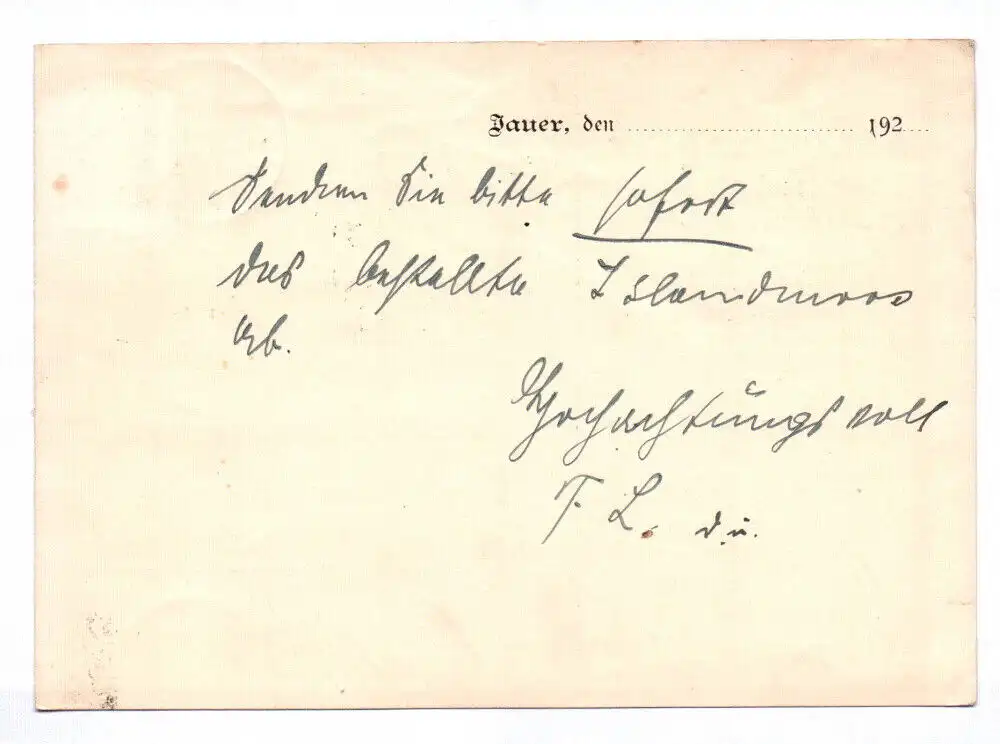 Jauer, den .................... 192....
Senden Sie bitte sofort
das bestellte Islandmoos
ab.
Hochachtungsvoll
F. L. d. u.